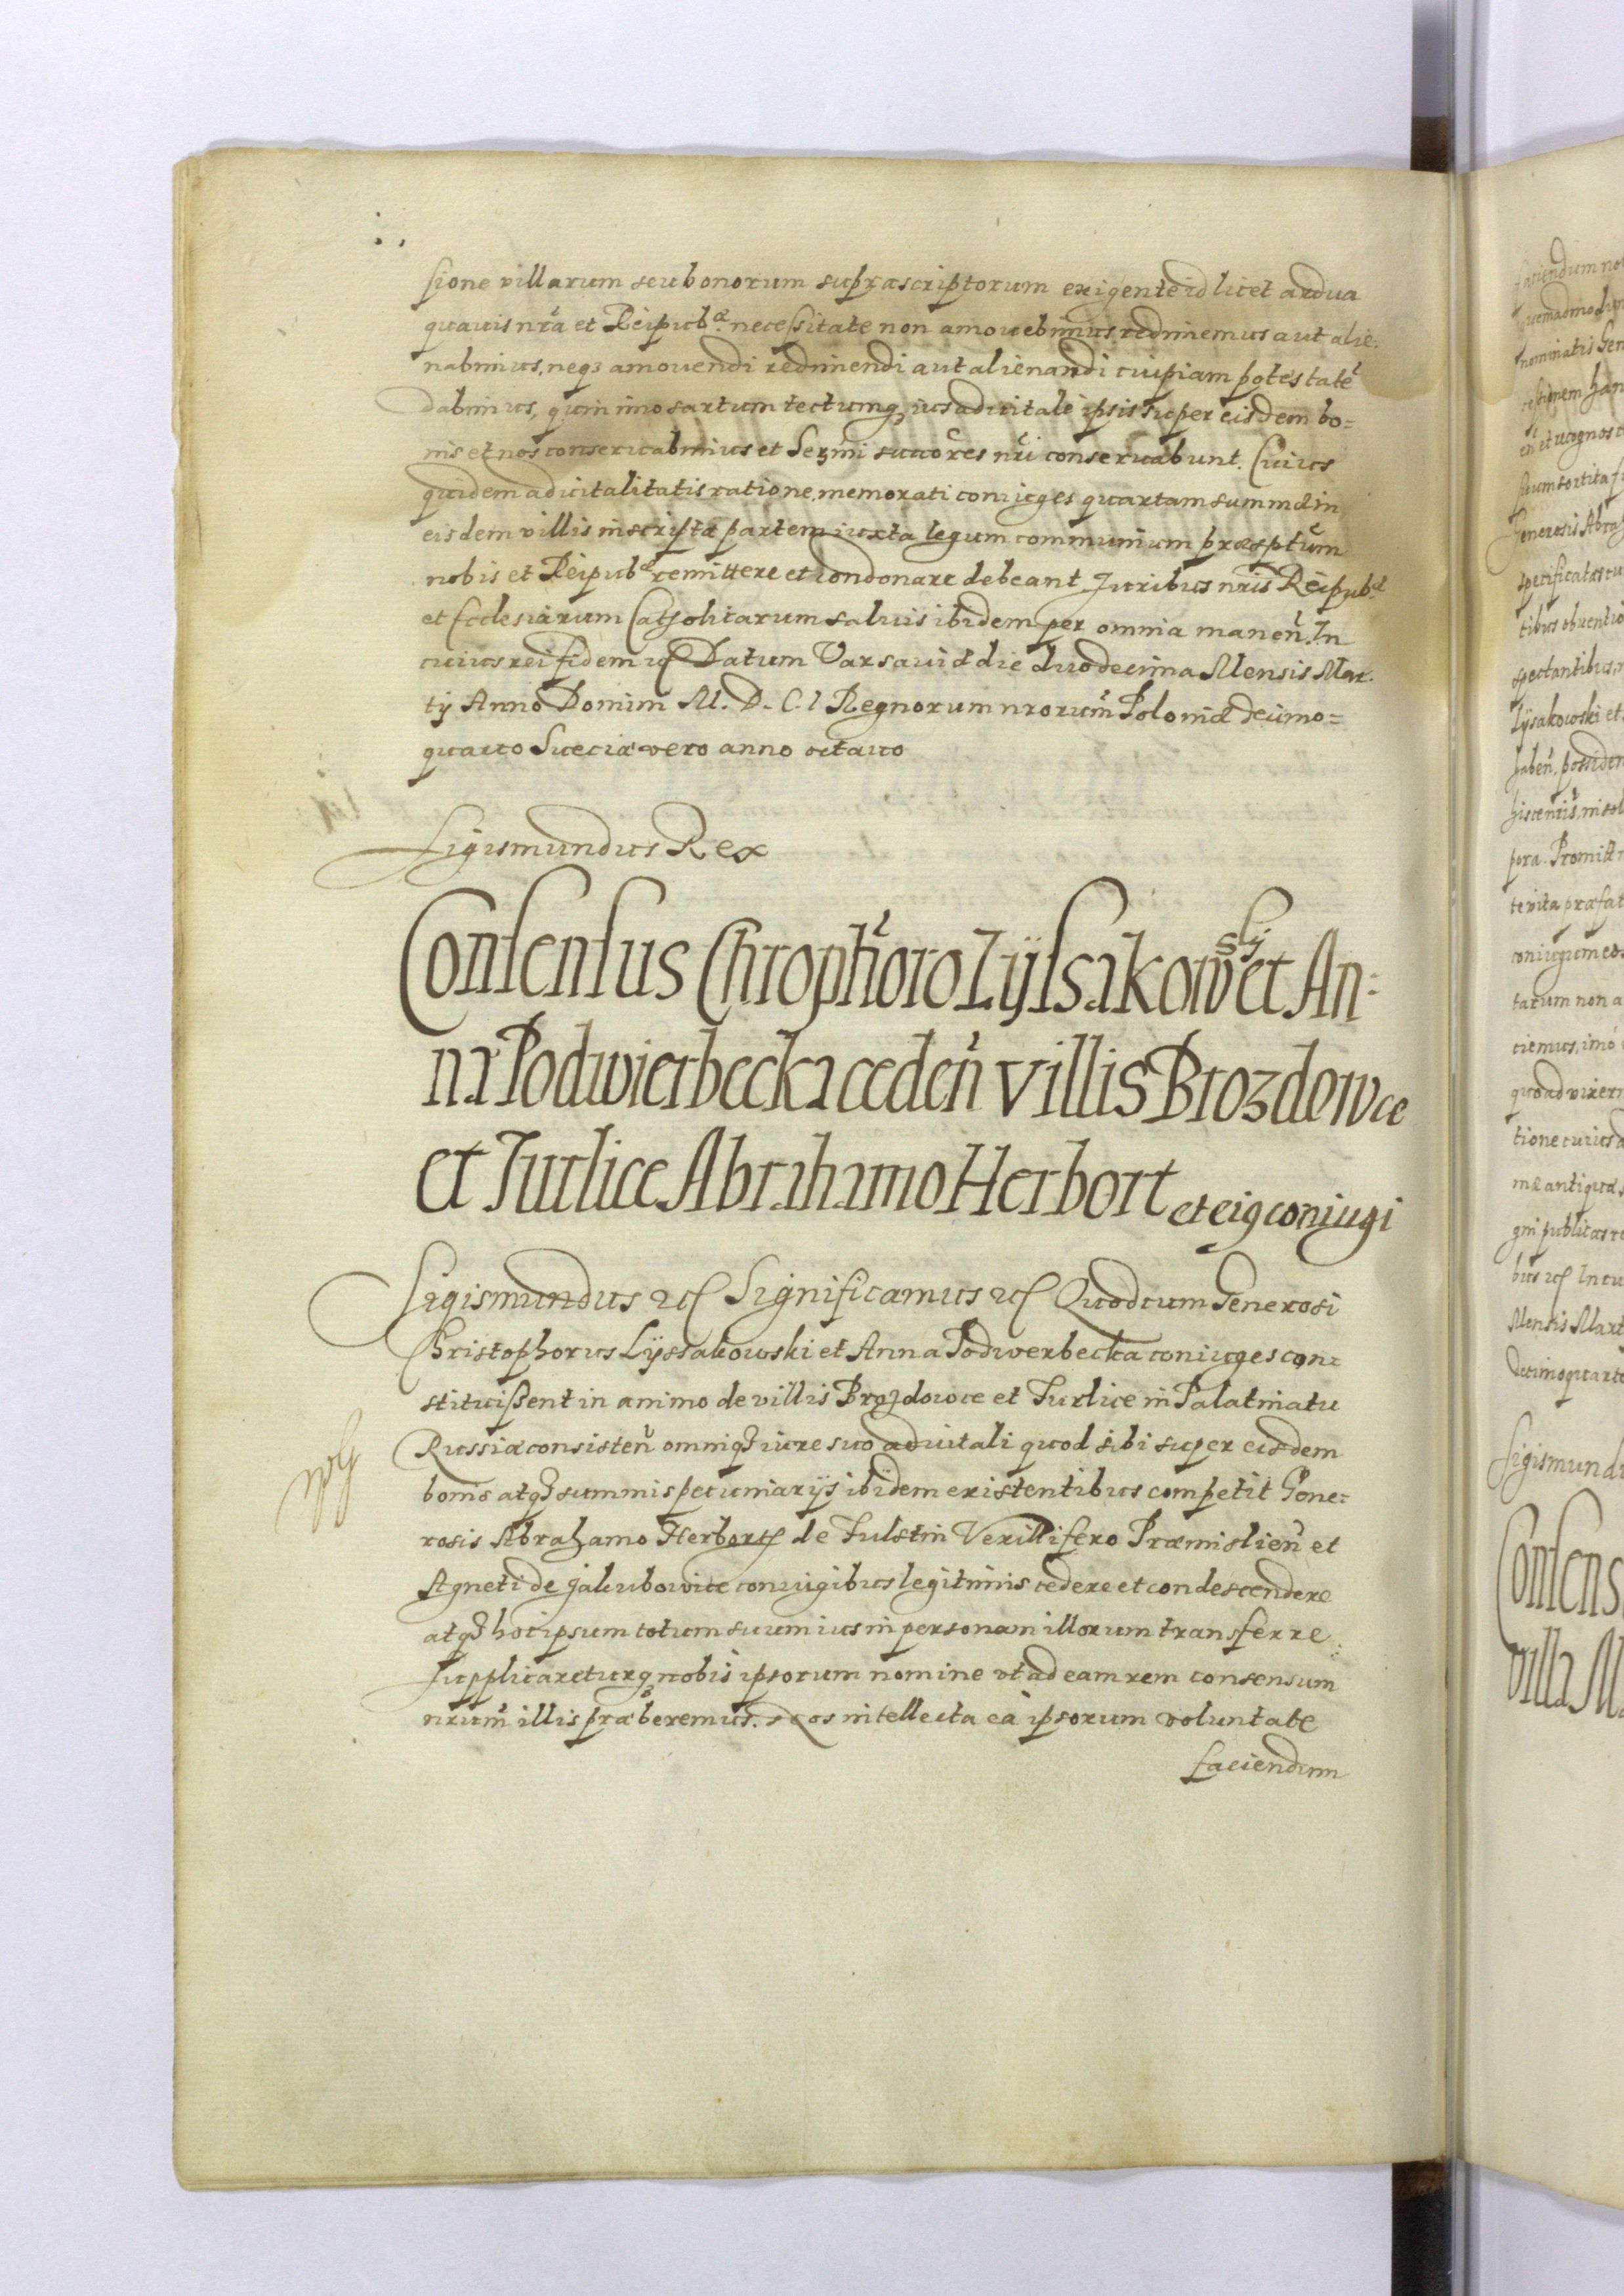 sione villarum seu bonorum supra scriptorum exigente id licet ardua
quavis nrã et Reipub.æ necessitate non amovebimus redimemus aut alie:
nabimus, neqꝫ amovendi redimendi aut alienandi cuipiam potestatẽ
dabimus, quin imo sartum tectumqꝫ ius advitale ipsis super eisdem bo=
nis et nos conservabimus et Serm̃i succõres nr̃i conservabunt. Cuius
quidem advitalitatis ratione, memorati coniuges quartam summæ in
eisdem villis inscriptæ partem iuxta legum communium præsptũm
nobis et Reipubæ remittere et condonare debeant Juribus nr̃is Reipubæ
et Ecclesiarum Catholicarum salvis ibidem per omnia maneñ. In
cuius rei fidem ꝛc Datum Varsaviæ die duodecima Mensis Mar.
tij Anno Domini M. D. C. I Regnorum nrorum̃ Poloniæ decimo=
quarto Sueciæ vero anno octavo
Sigismundus Rex
Consensus Chrophõro Lÿssakowskj et An=
næ Podwierbecka cedeñ villis Brozdowce
et Turlice Abrahamo Herbort et eiꝯ coniugi
Sigismundus ꝛc Significamus ꝛc Quod cum Generosi
Christophorus Lÿssakowski et Anna Podwerbecka coniuges con=
stituissent in animo de villis Brozdowce et Turlice in Palatinatu
Russiæ consisteñ omniqꝫ iure suo advitali quod sibi super eisdem
bonis atqꝫ summis pecuniarijs ibidem existentibus competit Gene=
rosis Abrahamo Herbort de Fulstin Vexillifero Præmislieñ et
Agneti de Jakubowice coniugibus legitimis cedere et condescendere
atqꝫ hoc ipsum totum suum ius in personam illorum transferre
Supplicareturqꝫ nobis ipsorum nomine ut ad eam rem consensum
nrum̃ illis præberemus. Nos intellecta ea ipsorum voluntate
faciendum